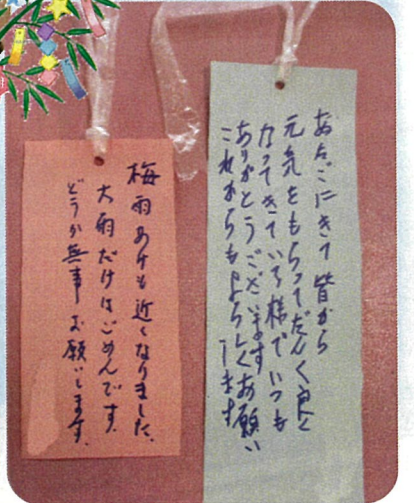 にきて皆から
元気をもらってだん〱良く
なってきている様でいつも
ありがとうございます
これからもよろしくお願い
します
梅雨あけも近くなりました、
大雨だけはごめんです。
どうか無事お願いします。